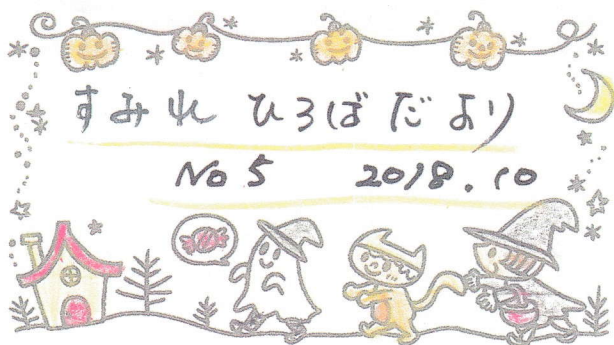 すみれ ひろばだより
No 5 2018.10